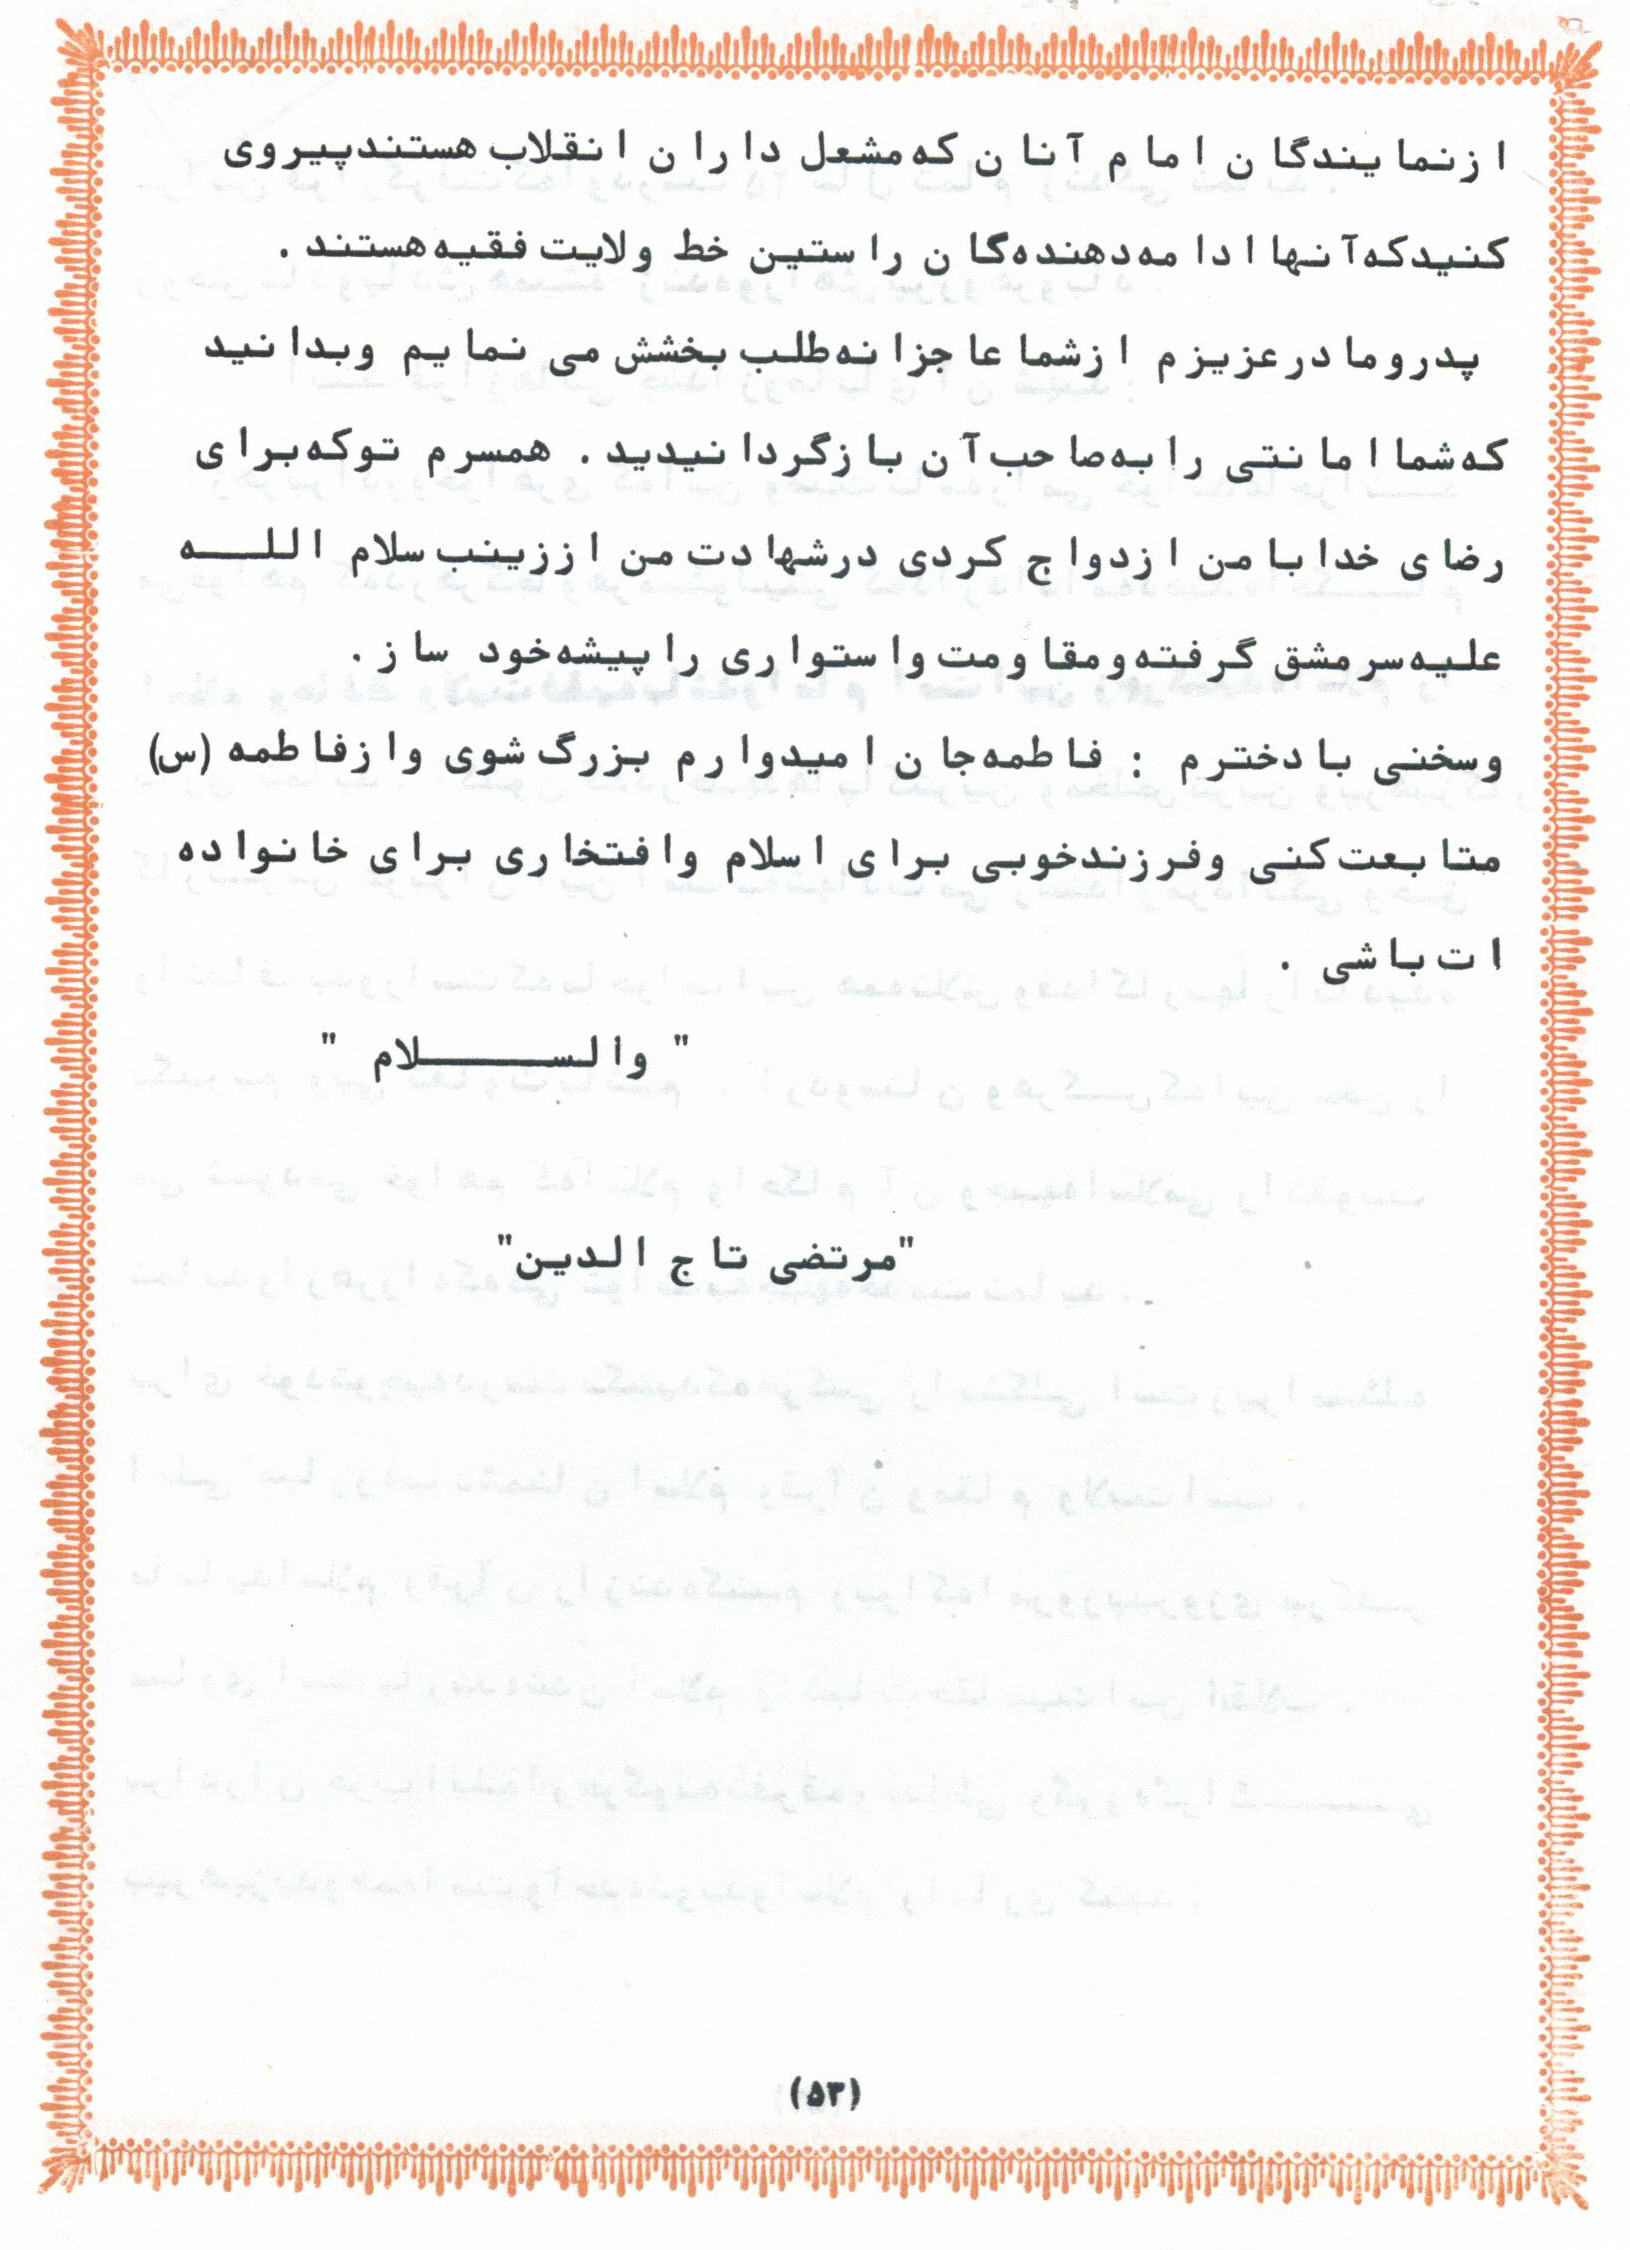 از نمایندگان امام آنان که مشعل داران انقلاب هستند پیروی
کنید که آنها ادامه دهنده گان راستین خط ولایت فقیه هستند .
پدر و مادر عزیزم از شما عاجزانه طلب بخشش می نمایم و بدانید
که شما امانتی را به صاحب آن بازگردانیدید . همسرم تو که برای
رضای خدا با من ازدواج کردی در شهادت من از زینب سلام اللـــه
علیه سرمشق گرفته و مقاومت و استواری را پیشه خود ساز .
و سخنی با دخترم : فاطمه جان امیدوارم بزرگ شوی و از فاطمه (س)
متابعت کنی و فرزند خوبی برای اسلام و افتخاری برای خانواده
ات باشی .
" والســـــلام "
"مرتضی تاج الدین"
(۵۳)